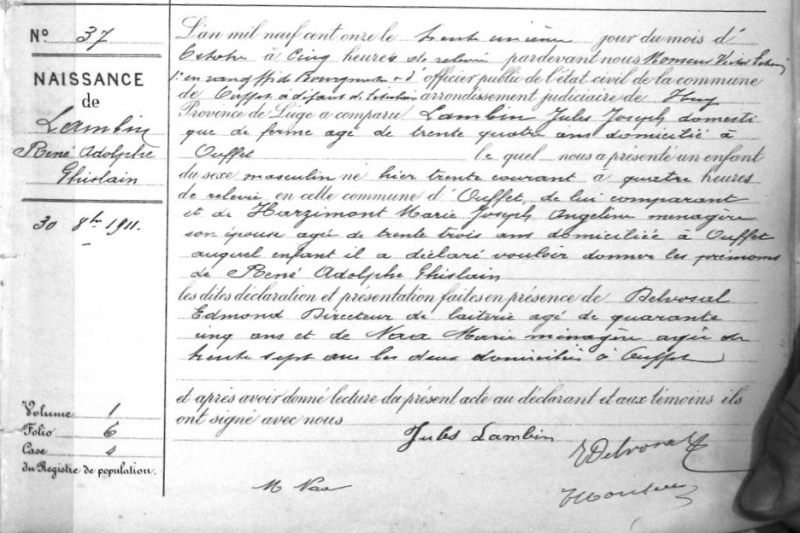 N° 37
NAISSANCE
de
Lambin
René Adolphe
Ghislain
30 8bre 1911.
Volume 1
Folio 6
Case 4
du Registre de population.
L'An mil neuf cent onze le trente unième jour du mois d'
Octobre à Cinq heures de relevée pardevant nous Monsieur Victor
d'officier public de l'état civil de la commune
de Ouffet à défaut de arrondissement judiciaire de Huy
Province de Liége a comparu Lambin Jules Joseph domesti
que de ferme agé de trente quatre ans domicilié à
Ouffet le quel nous a présenté un enfant
du sexe masculin né hier trente courant à quatre heures
de relevée, en cette commune d'Ouffet, de lui comparant
et de Harzimont Marie Joseph Angeline menagère
son épouse agée de trente trois ans domiciliée à Ouffet
auquel enfant il a déclaré vouloir donner les prénoms
de René Adolphe Ghislain
les dites déclaration et présentation faites en présence de Delvosal
Edmond Directeur de laiterie agé de quarante
cinq ans et de Naa Marie menagère agée de
trente sept ans les deux domiciliés à Ouffet
et après avoir donné lecture du présent acte au déclarant et aux témoins ils
ont signé avec nous
Jules Lambin
EDelvosal
M Naa